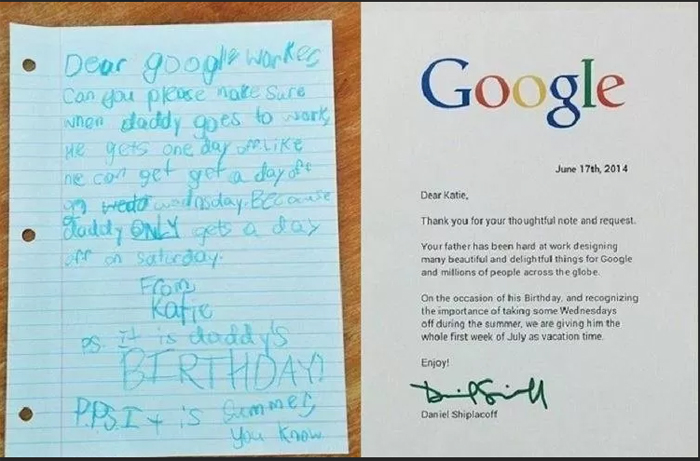 Dear google worker,
Can you please make sure
when daddy goes to work,
He gets one day off. Like
he can get get a day off
on wedo wednesday. BEcause
daddy ONLY gets a day
off on saturday.
From,
Katie
P.S. It is daddy's
BIRTHDAY!
P.P.S. It is summer,
you know.
Google
June 17th, 2014
Dear Katie,
Thank you for your thoughtful note and request.
Your father has been hard at work designing
many beautiful and delightful things for Google
and millions of people across the globe.
On the occasion of his Birthday, and recognizing
the importance of taking some Wednesdays
off during the summer, we are giving him the
whole first week of July as vacation time.
Enjoy!
Daniel Shiplacoff